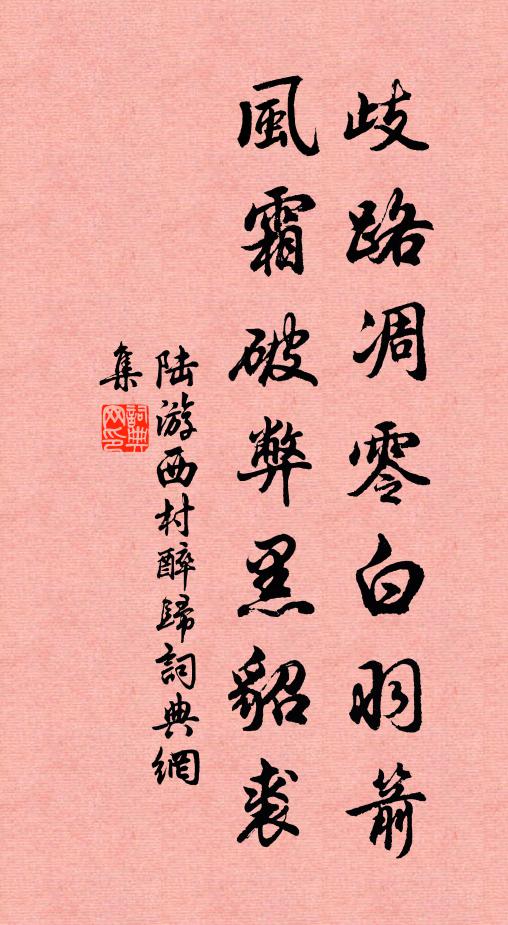 歧路凋零白羽箭
風霜破弊黑貂裘
陸游西村醉歸詞典網
集
詞典網印